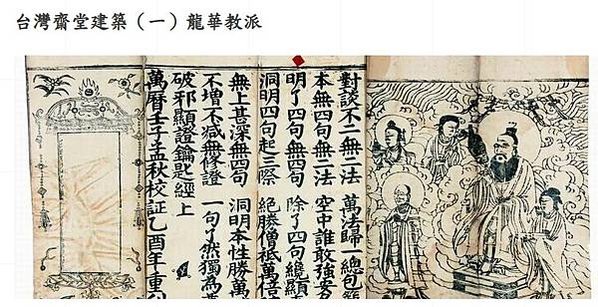 台灣齋堂建築（一）龍華教派
對談不二無二法 萬法歸一總包
本無四句無二法 空中誰敢強安
明了四句無四句 除了四句纔顯
洞明四句起三際 絕勝僧祗萬倍
無上甚深無四句 洞明本性勝萬
不增不減無修證 一句了然獨為
破邪顯證鑰匙經上
萬曆壬子孟秋校証乙酉年重